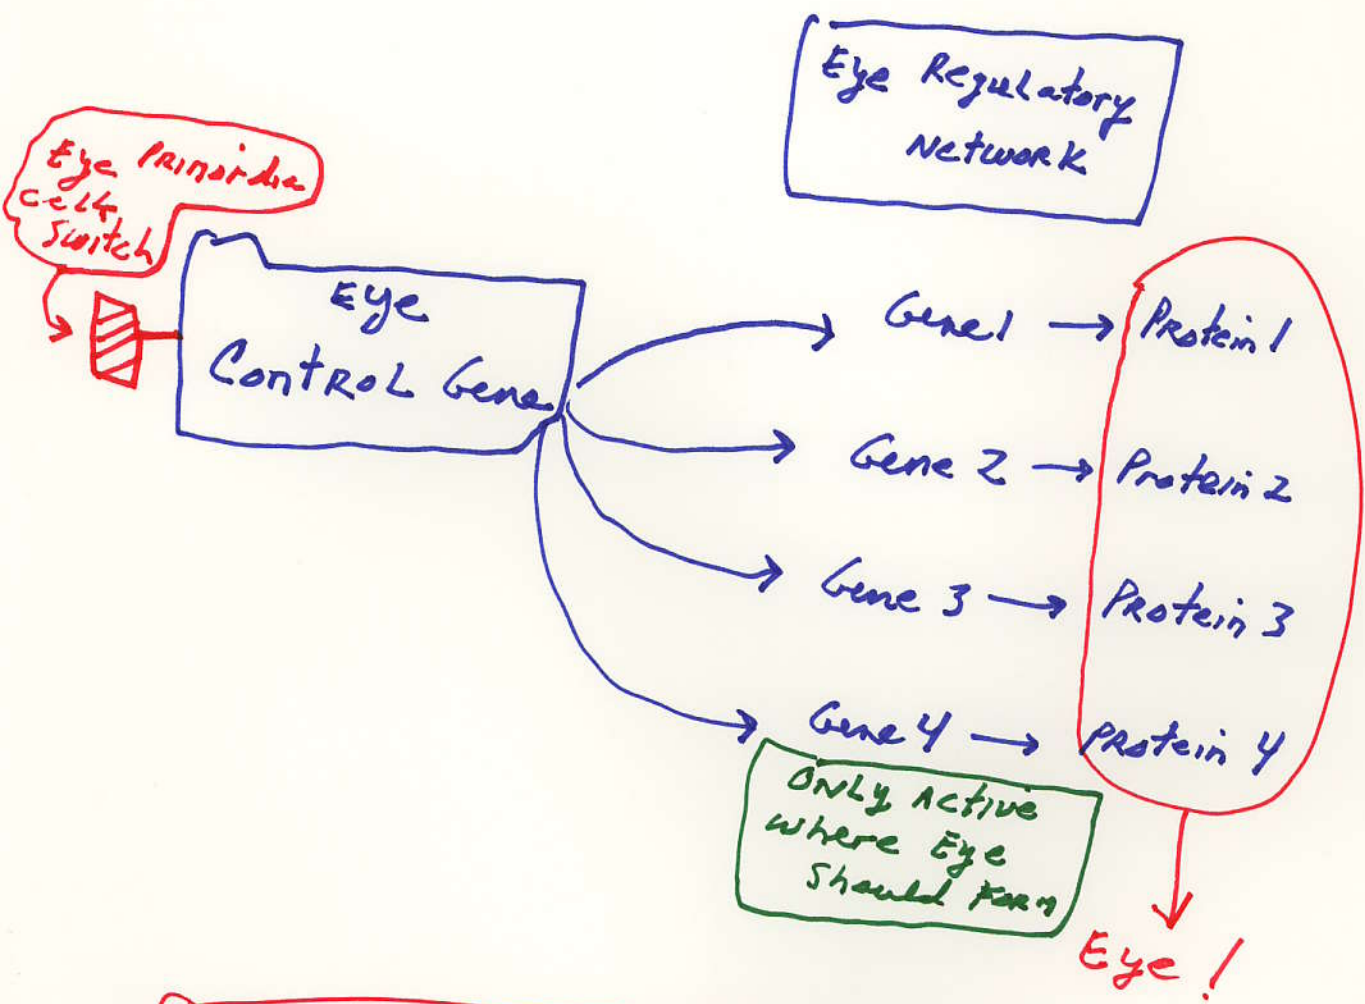 Eye Regulatory
Network
Eye Primordia
Cell
Switch
Eye
Control Gene
Gene 1 → Protein 1
Gene 2 → Protein 2
Gene 3 → Protein 3
Gene 4 → Protein 4
Only Active
where Eye
Should Form
Eye!